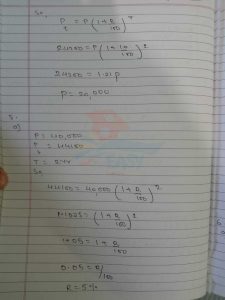 So,
P_T = P(1+R/100)^T
24200 = P(1+10/100)^2
24200 = 1.21P
P = 20,000
5.
a)
P = 40,000
P_T = 44100
T = 2yr
So,
44100 = 40,000(1+R/100)^2
1.1025 = (1+R/100)^2
1.05 = 1+R/100
0.05 = R/100
R = 5%
EASY